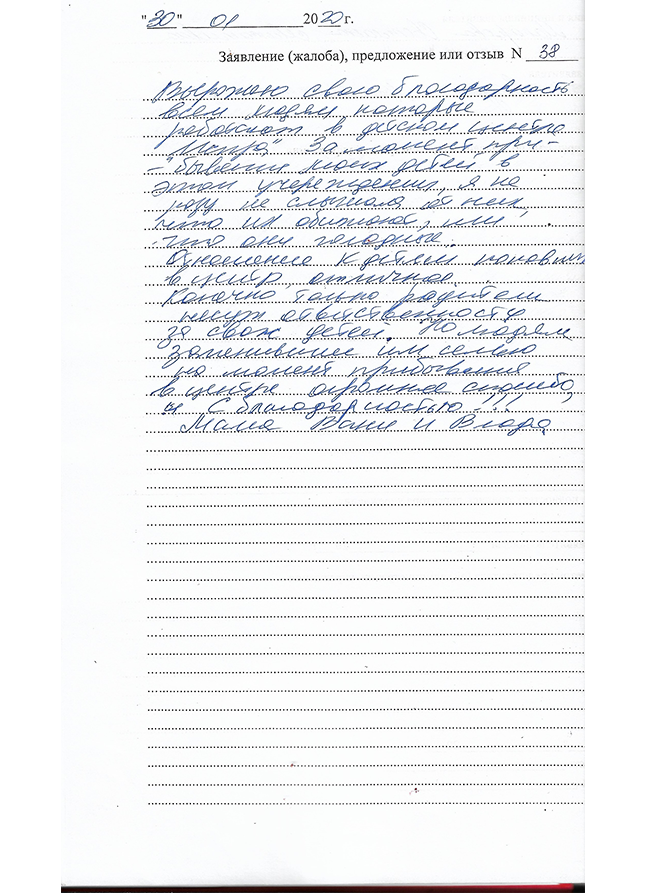 "30" 01 2020 г.
Заявление (жалоба), предложение или отзыв N 38
Выражаю свою благодарность
всем людям которые
работают в детском центре
"Искра" За момент при-
-бывения моих детей в
этом учереждении, я не
разу не слышала от них,
что их обижают, или,
что они голодные.
Отношение к детям попавшим
в центр, отличное.
Конечно только родители
несут ответственность
за своих детей. Но людям
заменившим им семью
на момент прибывания
в центре огромное спасибо,
и С благодарностью!!!
Мама Вани и Влада